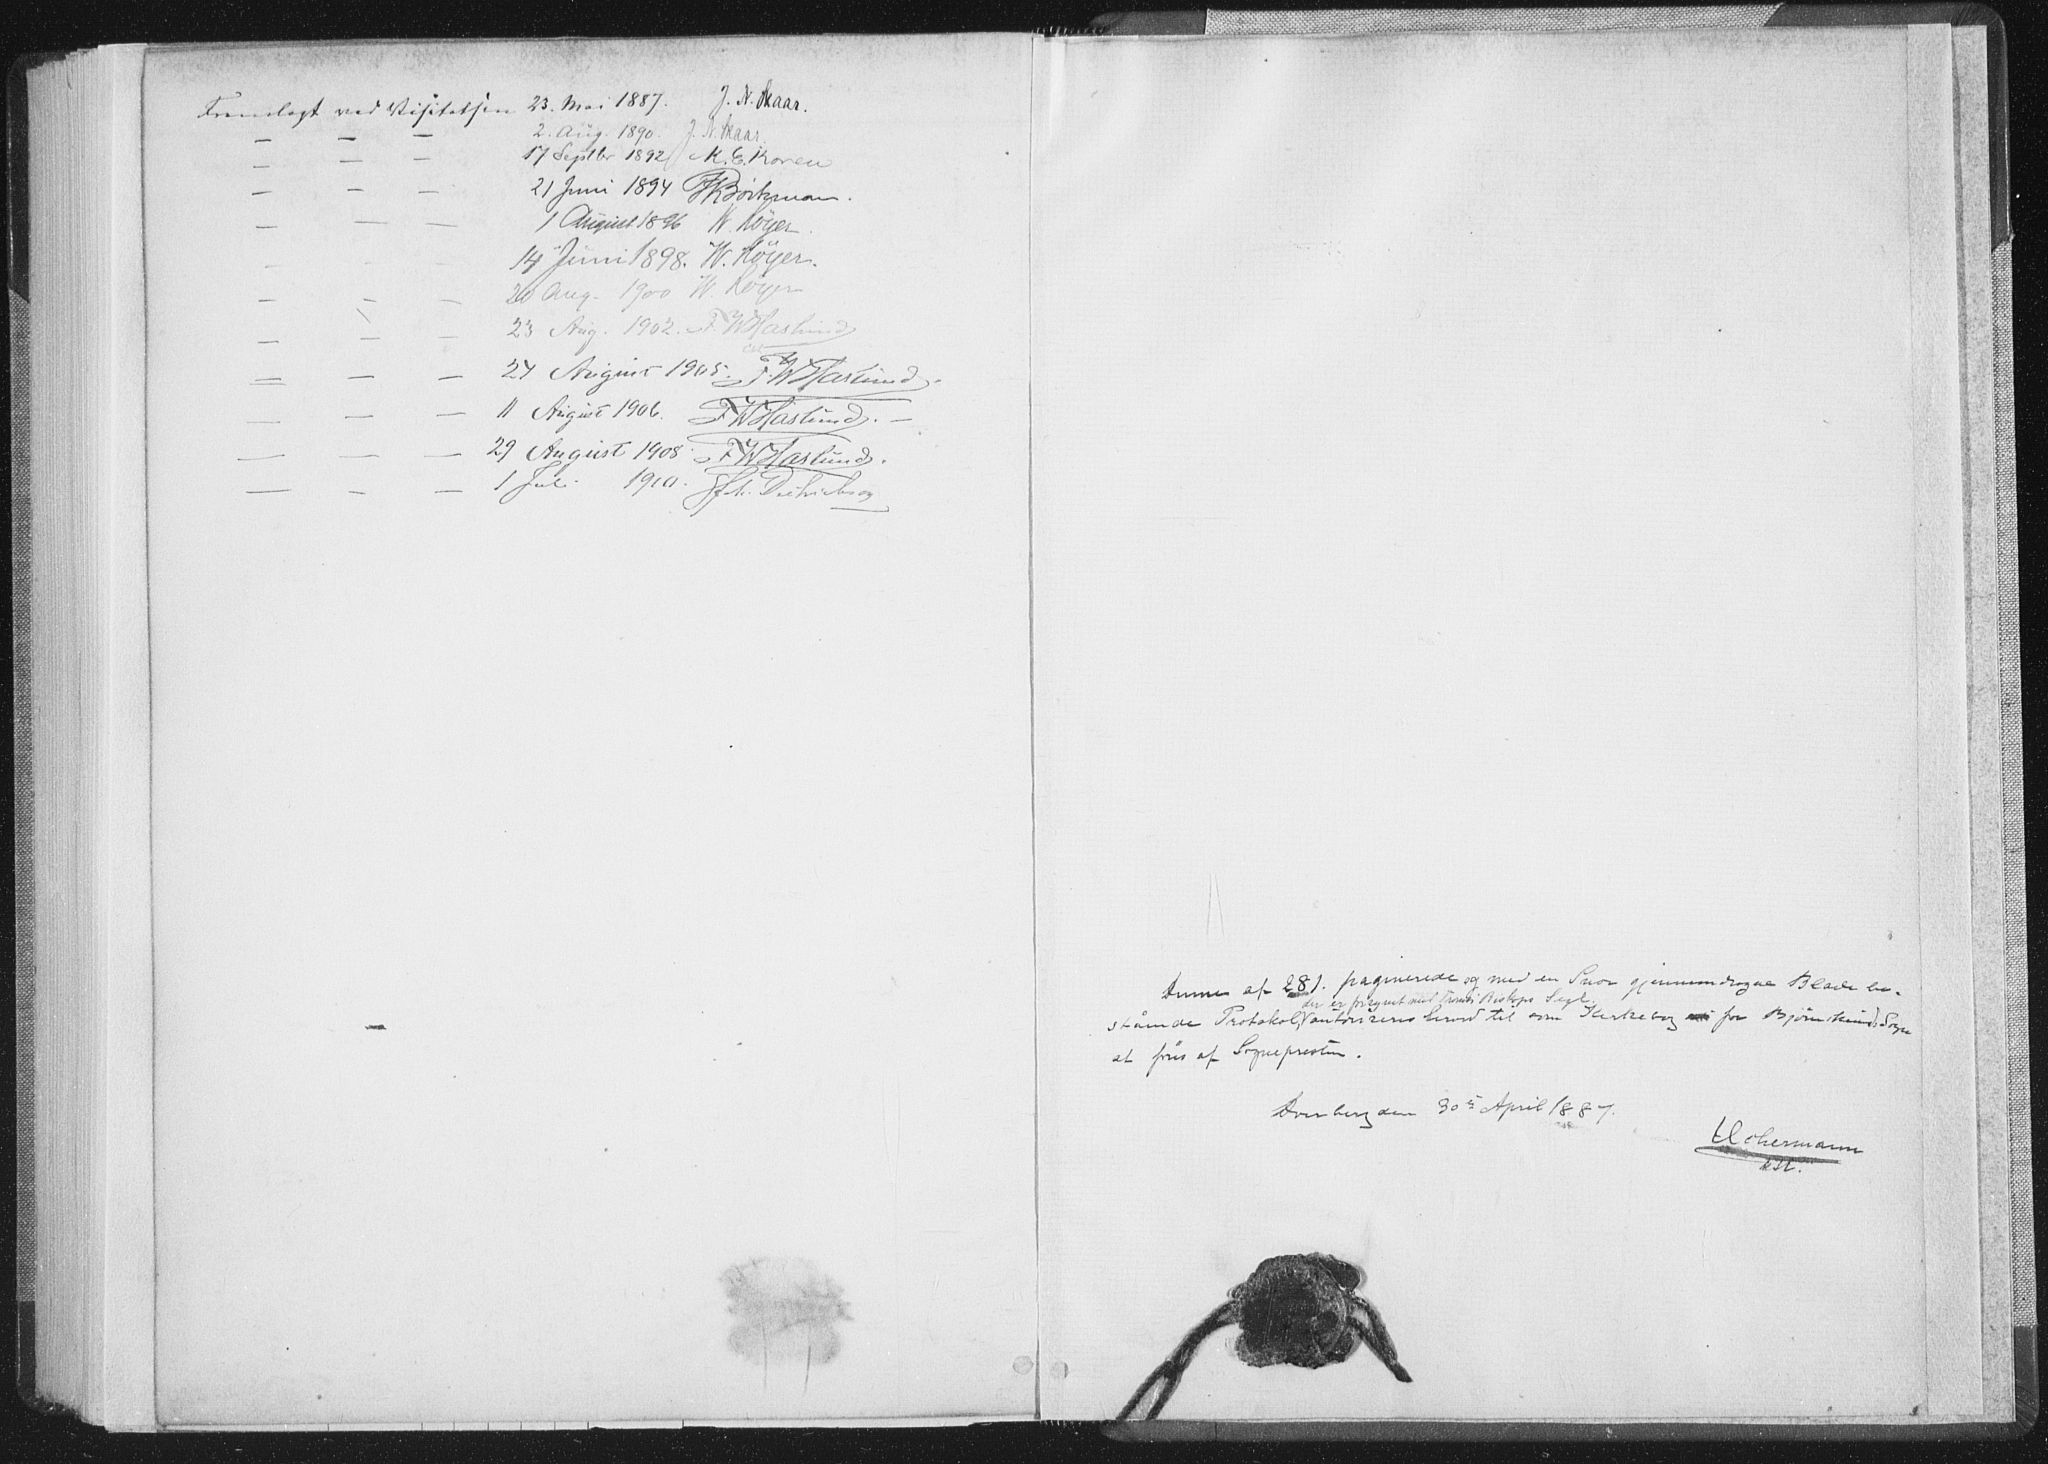 Fremlagt ved Visitatsen 23. Mai 1887. J. N. Skaar.
— — — 2. Aug. 1890. J. N. Skaar.
— — — 17 Septbr 1892 M. E. Koren
— — — 21 Juni 1894 Böckman.
— — — 1 August 1896 W. Höyer.
— — — 14 Juni 1898. W. Höyer.
— — — 20 Aug. 1900 W. Höyer
— — — 23 Aug. 1902. F. W Haslund
— — — 24 August 1905. F. W Haslund.
— — — 11 August 1906. F W Haslund. —
— — — 29 August 1908. F W Haslund.
— — — 1 Juli 1910. Dietrichson
Denne af 281. paginerede og med en Snor gjennemdragne Blade be-
der er forsynet med Tromsö Biskops Segl.
stående Protokol, autoriseres herved til som Kirkebog for Björnskinds Sogn
at föres af Sognepresten.
Dverberg den 30te April 1887.
Uchermann
kst.